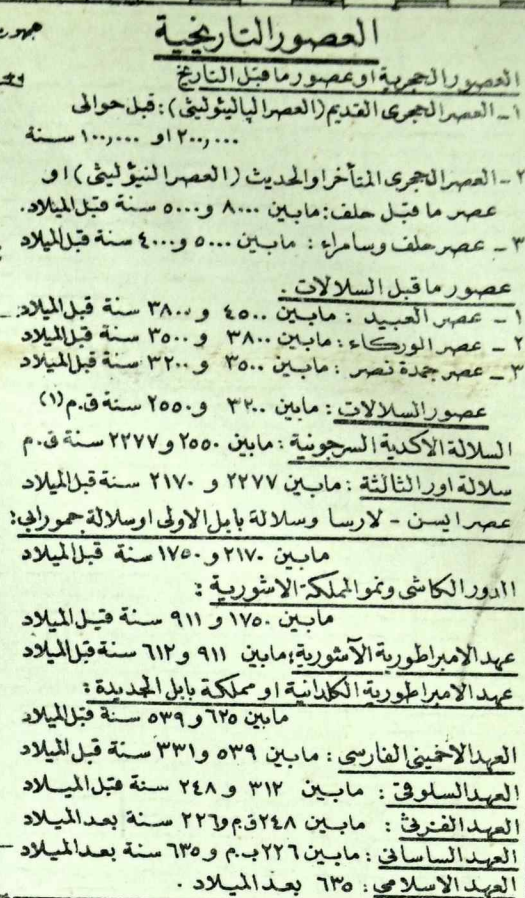 العصور التاريخية
العصور الحجرية او عصور ما قبل التاريخ
١ـ العصر الحجري القديم (العصر الپاليئوليثي) : قبل حوالى
٢٠٠,٠٠٠ او ١٠٠,٠٠٠ سنة
٢ـ العصر الحجري المتأخر او الحديث (العصر النيؤليثي) او
عصر ما قبل حلف : مابين ٨٠٠٠ و ٥٠٠٠ سنة قبل الميلاد.
٣ـ عصر حلف وسامراء : مابين ٥٠٠٠ و ٤٠٠٠ سنة قبل الميلاد
عصور ما قبل السلالات .
١ـ عصر العبيد : مابين ٤٥٠٠ و ٣٨٠٠ سنة قبل الميلاد.
٢ـ عصر الوركاء : مابين ٣٨٠٠ و ٣٥٠٠ سنة قبل الميلاد
٣ـ عصر جمدة نصر : مابين ٣٥٠٠ و ٣٢٠٠ سنة قبل الميلاد
عصور السلالات : مابين ٣٢٠٠ و ٢٥٥٠ سنة ق.م (١)
السلالة الاكدية السرجونية : مابين ٢٥٥٠ و ٢٢٧٧ سنة ق.م
سلالة اور الثالثة : مابين ٢٢٧٧ و ٢١٧٠ سنة قبل الميلاد
عصر ايسن - لارسا وسلالة بابل الاولى او سلالة حمورابي :
مابين ٢١٧٠ و ١٧٥٠ سنة قبل الميلاد
الدور الكاشي ونمو المملكة الاشورية :
مابين ١٧٥٠ و ٩١١ سنة قبل الميلاد
عهد الامبراطورية الآشورية : مابين ٩١١ و ٦١٢ سنة قبل الميلاد
عهد الامبراطورية الكلدانية او مملكة بابل الجديدة :
مابين ٦٢٥ و ٥٣٩ سنة قبل الميلاد
العهد الاخميني الفارسي : مابين ٥٣٩ و ٣٣١ سنة قبل الميلاد
العهد السلوقي : مابين ٣١٢ و ٢٤٨ سنة قبل الميلاد
العهد الفرثي : مابين ٢٤٨ ق.م و ٢٢٦ سنة بعد الميلاد
العهد الساساني : مابين ٢٢٦ ب.م و ٦٣٥ سنة بعد الميلاد
العهد الاسلامي : ٦٣٥ بعد الميلاد .